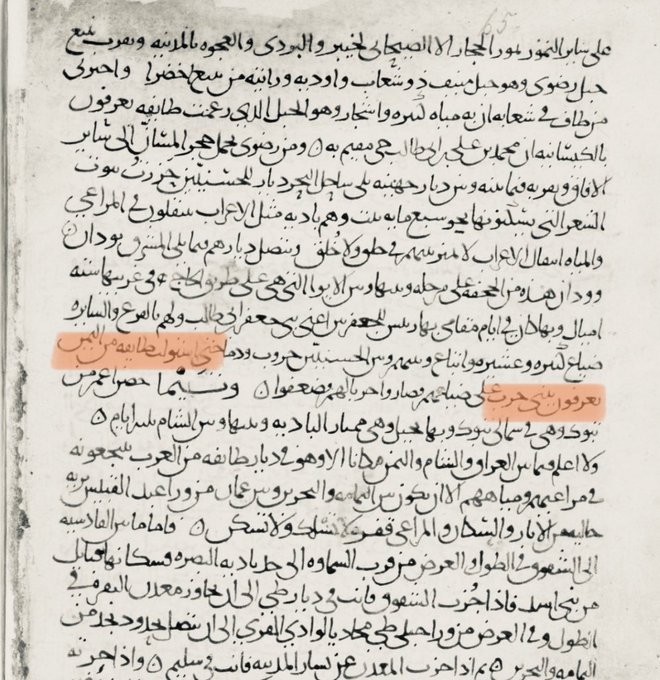 على سائر التمور تمور الحجاز الا الصيحاني لخيبر والبردي والعجوه بالمدينه وبقرب ينبع
جبل رضوى وهو جبل منيف ذو شعاب واوديه ورايته من ينبع اخضرا واخبرني
من طاف في شعابه ان به مياه كثيره واشجار وهو الجبل الذي زعمت طايفه يعرفون
بالكيسانيه ان محمد بن علي بن ابي طالب حي مقيم به ومن رضوى يحمل حجر المسان الى ساير
الافاق وبقربه فيما بينه وبين ديار جهينه بلي ساحل البحر ديار للحسنيين حزرت بيوت
الشعر التي يسكنونها نحو سبع مايه بيت وهم باديه مثل الاعراب ينتقلون في المراعي
والمياه انتقال الاعراب لا تميز بينهم في خلق ولا خلق وتتصل ديارهم فيما يلي المشرق بودان
وودان هذه من الجحفه على مرحله وبينها وبين الابوا التي هي على طريق الحاج في غربيها سته
اميال وبها كان في ايام مقامي بها رييس للجعفريين اعني بني جعفر بن ابي طالب ولهم بالفرع والسايره
ضياع كثيره وعشيره واتباع وبينهم وبين الحسنيين حروب ودما حتى استولت طايفه من اليمن
يعرفون ببني حرب على ضياعهم وصاروا حربا لهم فضعفوا وتيما حصن اعمر من
تبوك وهي في شمالي تبوك وبها نخيل وهي ممتار الباديه وبينها وبين الشام ثلثه ايام
ولا اعلم فيما بين العراق والشام واليمن مكانا الا وهو في ديار طايفه من العرب ينتجعونه
في مراعيهم ومياههم الا ان يكون بين اليمامه والبحرين وبين عمان من ورا عبد القيس بريه
خاليه من الابار والسكان والمراعي قفره لا تسلك ولا تسكن فاما ما بين القادسيه
الى الشقوق في الطول وفي العرض من قرب السماوه الى حد باديه البصره وسكانها قبايل
من بني اسد فاذا جزت الشقوق فانت في ديار طي الى ان تجاوز معدن النقره في
الطول وفي العرض من ورا جبلي طي محاذيا لوادي القرى الى ان تتصل بحدود نجد من
اليمامه والبحرين ثم اذا جزت المعدن عن يسار المدينه فانت في سليم واذا جزته